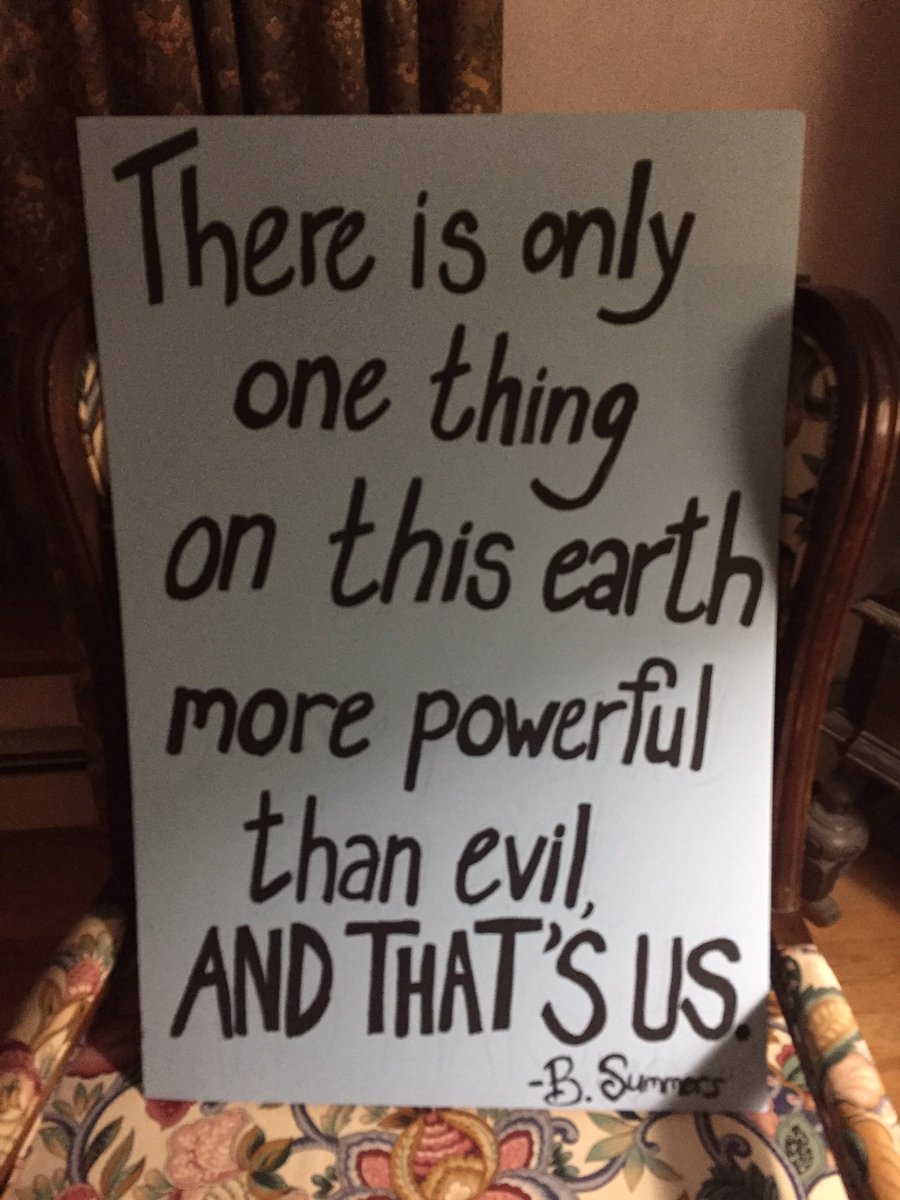 There is only
one thing
on this earth
more powerful
than evil,
AND THAT'S US.
-B. Summers